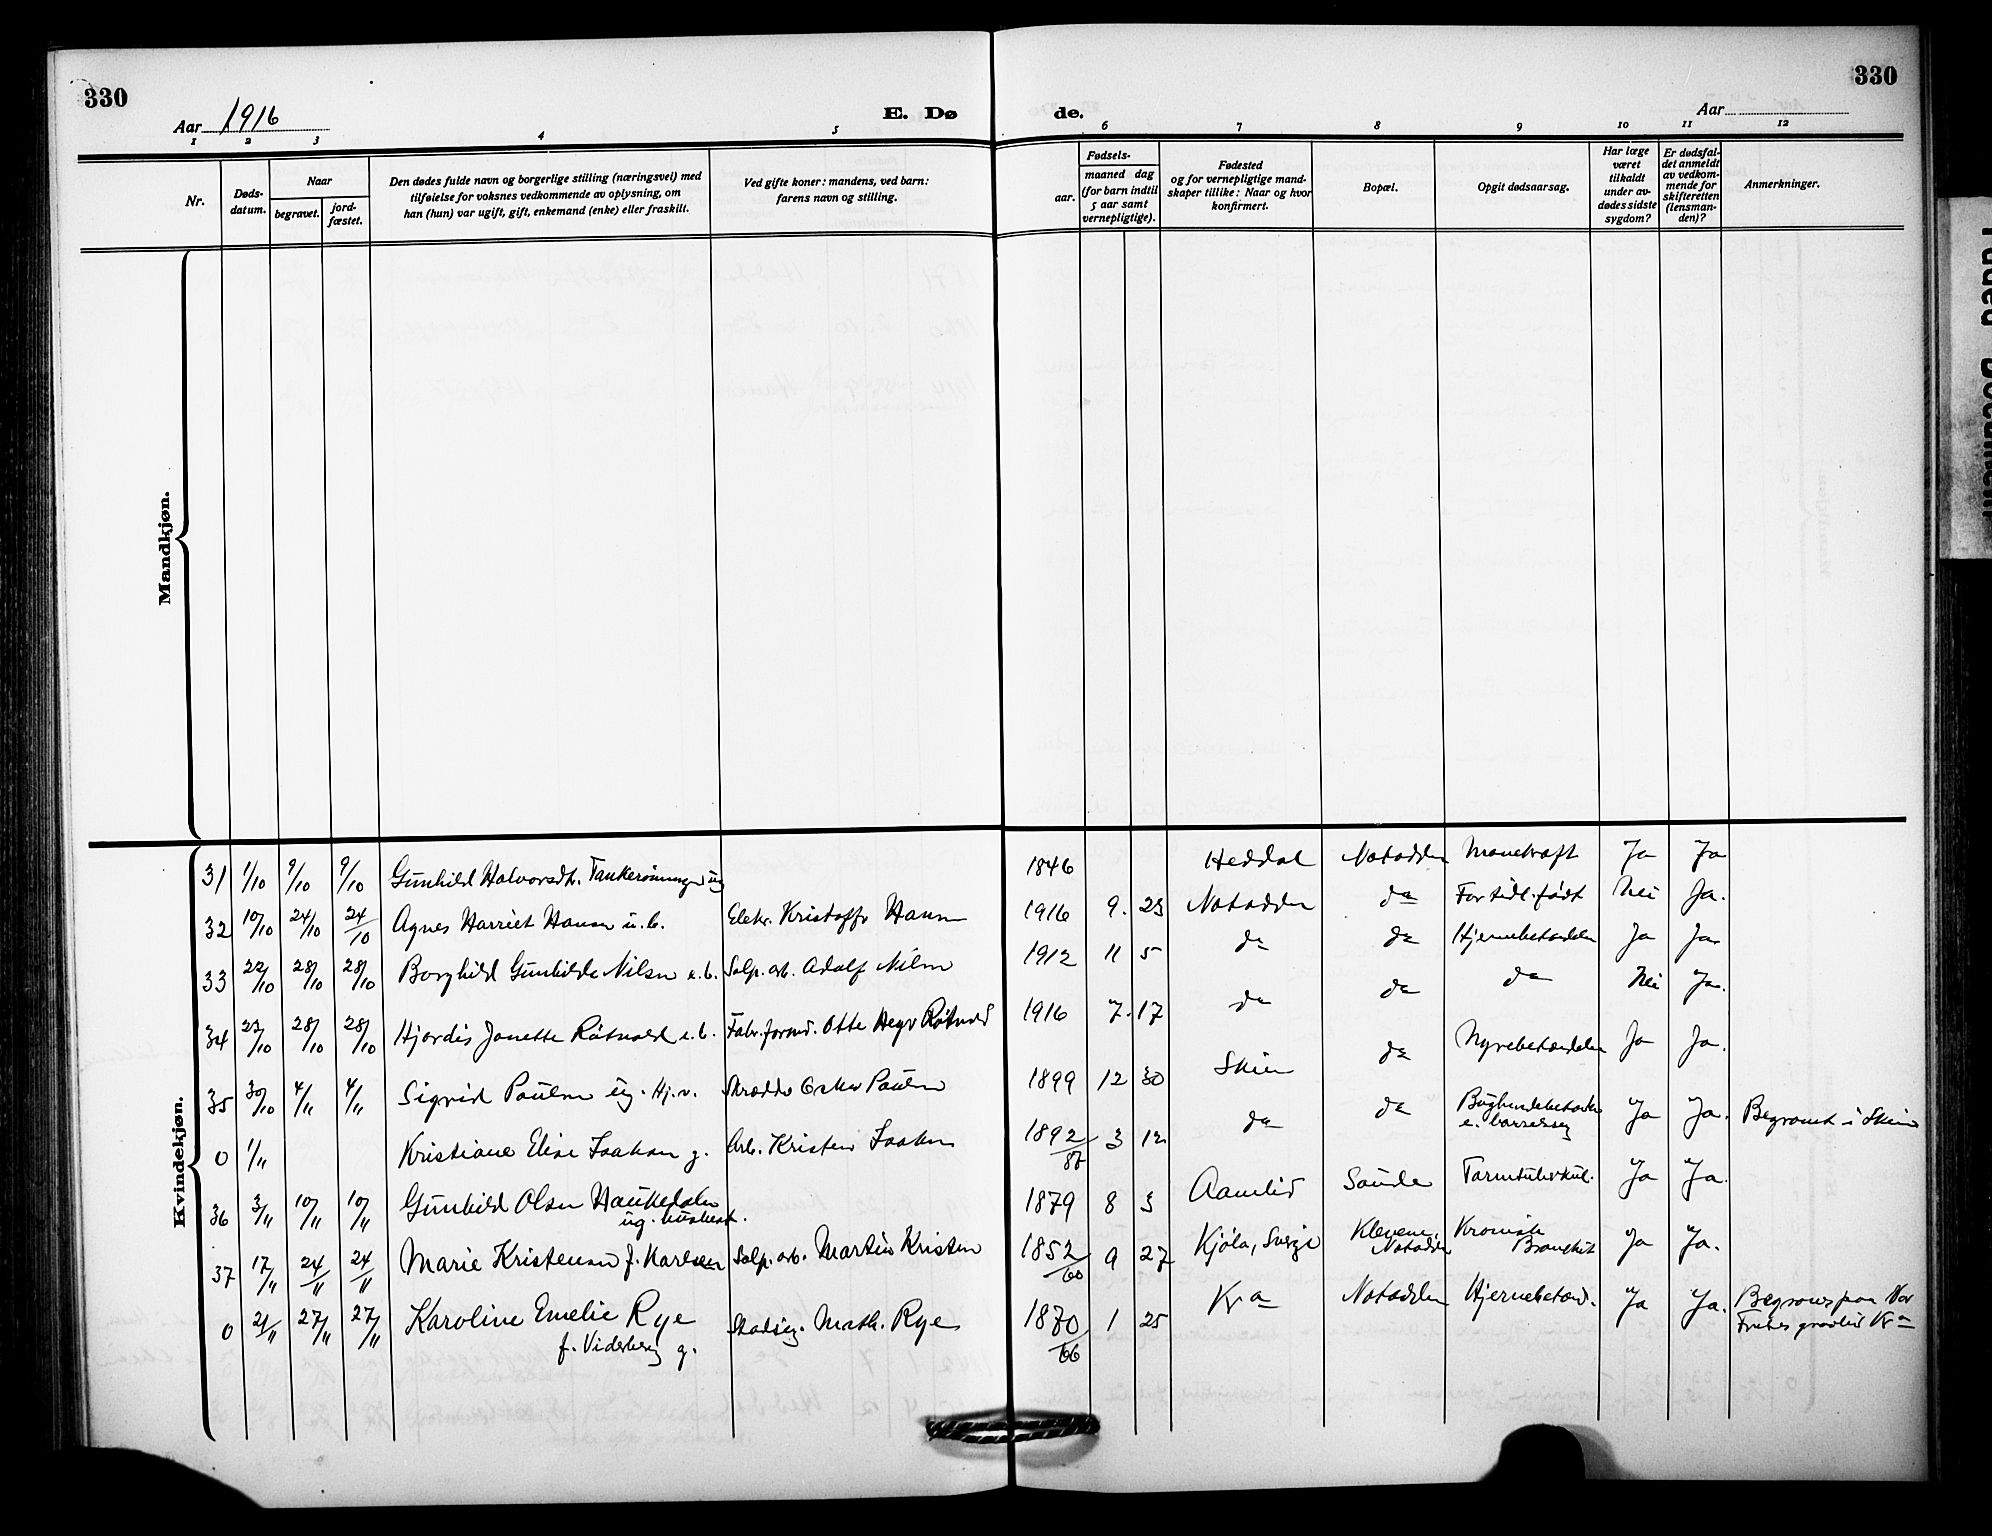 330
330
Aar 1916
E. Dø
de.
Aar
1 2 3 4 5
6 7 8 9 10 11 12
Nr.
Døds-
datum.
Naar
begravet.
jord-
fæstet.
Den dødes fulde navn og borgerlige stilling (næringsvei) med
tilføielse for voksnes vedkommende av oplysning, om
han (hun) var ugift, gift, enkemand (enke) eller fraskilt.
Ved gifte koner: mandens, ved barn:
farens navn og stilling.
Fødsels-
aar.
maaned dag
(for barn indtil
5 aar samt
vernepligtige).
Fødested
og for vernepligtige mand-
skaper tillike: Naar og hvor
konfirmert.
Bopæl.
Opgit dødsaarsag.
Har læge
været
tilkaldt
under av-
dødes sidste
sygdom?
Er dødsfal-
det anmeldt
av vedkom-
mende for
skifteretten
(lensman-
den)?
Anmerkninger.
Mandkjøn.
Kvindekjøn.
31 1/10 9/10 9/10 Gunhild Halvorsdt. ug 1846 Heddal Notodden Ja Ja
32 10/10 24/10 24/10 Agnes Harriet Hansen u.b. Elektr. Kristoffer Hansen 1916 9. 23 Notodden do For tidl. født Nei Ja.
33 22/10 28/10 28/10 Borghild Gunhilde Nilsen e.b. Salp. arb. Adolf Nilsen 1912 11 5 do do Hjernebetændelse Ja Ja.
34 22/10 28/10 28/10 Hjørdis Janette e.b. Fabr. formd. Otto 1916 7. 17 do do do Nei Ja.
35 30/10 4/11 4/11 Sigrid Paulsen ug. Hj.v. Skrædder Oskar Paulsen 1899 12 30 Skien do Nyrebetændelse Ja Ja.
0 1/11 Kristiane Elise Isaksen g. Arb. Kristen Isaksen 1892/87 3 12 do do Bughindebetændelse
e. barselseng Ja Ja. Begravet i Skien
36 3/11 10/11 10/11 Gunhild Olsen Haukedalen
ug. husbest. 1879 8 3 Aamlid Saude Tarmtuberkul. Ja Ja.
37 17/11 24/11 24/11 Marie Kristensen f. Karlsen Salp. arb. Martin Kristensen 1852/60 9 27 Kjøla, Sverge Klevene,
Notodden Kronisk
Bronchit Ja Ja.
0 21/11 27/11 27/11 Karoline Emelie Rye
f. Viderberg g. Stadsing. Math. Rye 1870/66 1 25 Kra Notodden Hjernebetænd. Ja Ja. Begraves paa Vor
Frelses gravlund Kra